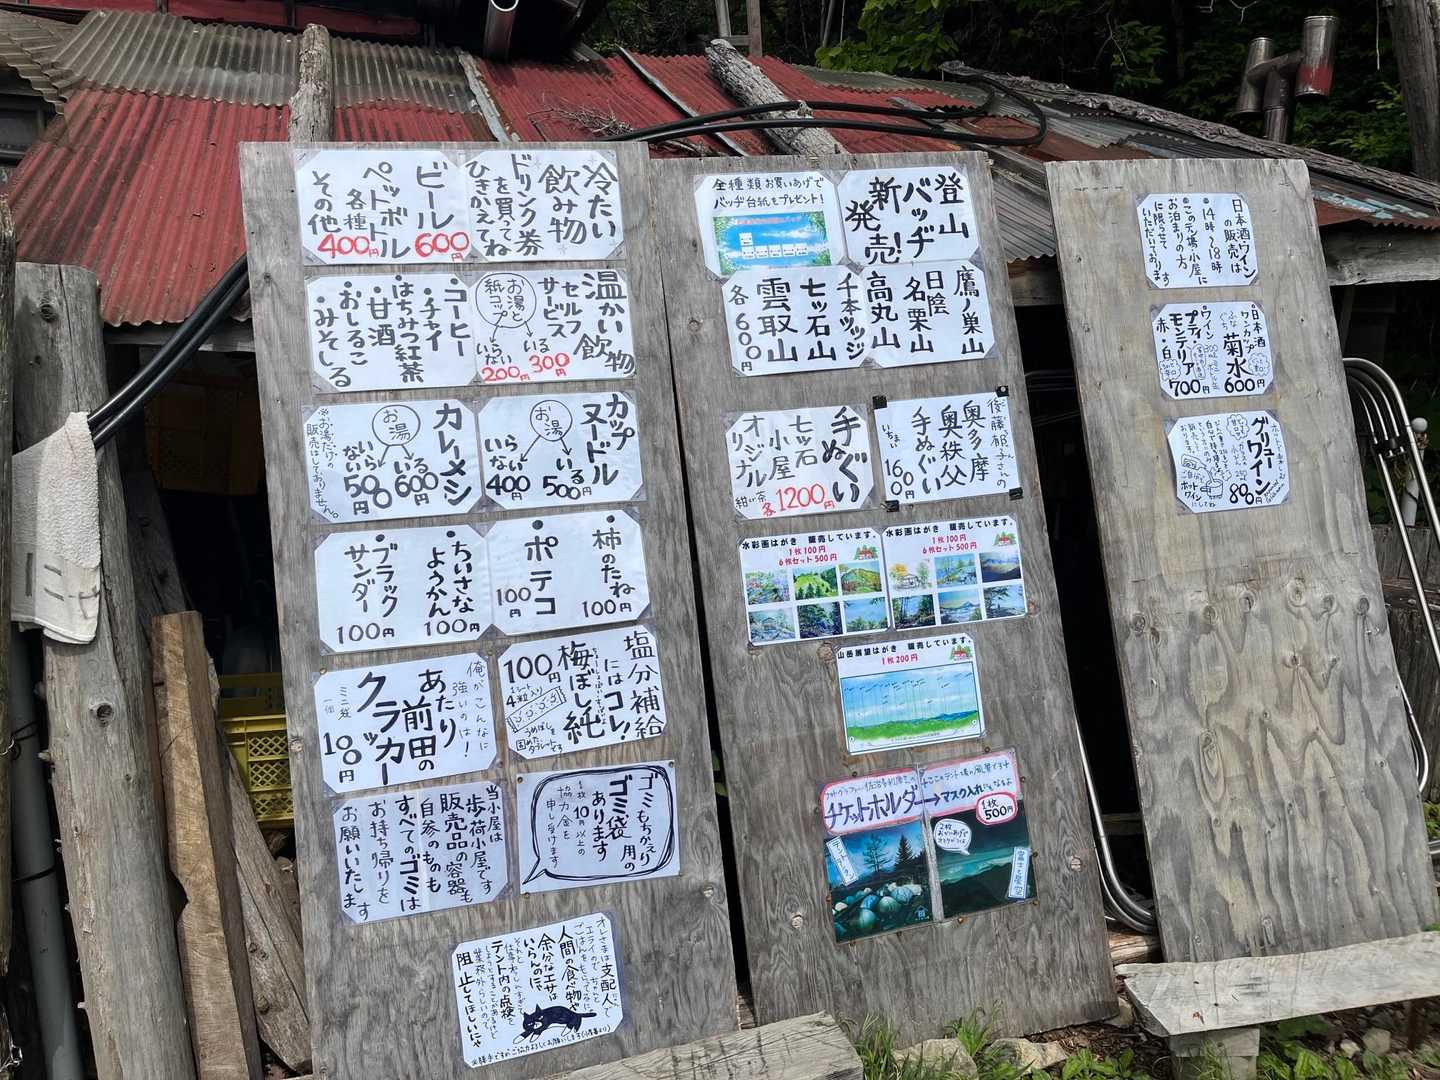 冷たい
飲み物
ドリンク券
を買って
ひきかえてね
ビール
600円
ペットボトル
各種
その他
400円
温かい飲物
セルフ
サービス
お湯と
紙コップ
いる
300円
いらない
200円
・コーヒー
・チャイ
・はちみつ紅茶
・甘酒
・おしるこ
・みそしる
カップ
ヌードル
お湯
いる
500円
いら
ない
400円
カレーメシ
お湯
いる
600円
いら
ない
500円
※お湯だけの
販売はしておりません。
・柿のたね
100円
・ポテコ
100円
・ちいさな
ようかん
100円
・ブラック
サンダー
100円
塩分補給
にはコレ!
梅ぼし純
100円
1シート
4粒入り
うめぼしを
固めた
タブレットです
俺がこんなに
強いのは!
あたり
前田の
クラッカー
ミニ袋
一個
100円
ゴミもちかえり
用の
ゴミ袋
あります
1枚10円以上の
協力金を
申し受けます
当小屋は
歩荷小屋です
販売品の容器も
自参のものも
すべてのゴミは
お持ち帰りを
お願いいたします
オレさまは支配人で
エライのでちゃんと
ごはんをもらってるにゃ
人間の食べ物や
余分なエサは
いらんのにゃ
テント内の点検を
業務外らしいので
阻止してほしいにゃ
登山
バッヂ
新
発売!
全種類お買いあげで
バッヂ台紙をプレゼント!
鷹ノ巣山
日陰
名栗山
高丸山
千本ツツジ
七ッ石山
雲取山
各600円
後藤郁子さんの
奥多摩
奥秩父
手ぬぐい
いちまい
1600円
手ぬぐい
七ッ石
小屋
オリジナル
紺or茶
各1200円
水彩画はがき 販売しています。
1枚100円
6枚セット500円
水彩画はがき 販売しています。
1枚100円
6枚セット500円
山岳展望はがき 販売しています。
1枚200円
チケットホルダー→マスク入れにもなるよ
1枚
500円
2枚
お買いあげで
富士と星空
日本酒ワイン
の販売は
・14時〜18時
・このテン場小屋に
お泊まりの方
に限らせて
いただいております
・日本酒
ワンカップ
ふな
ぐち
菊水
600円
・ワイン
プティ
モンテリア
赤・白
700円
グリューワイン
800円
ホット
ワイン
にしてね